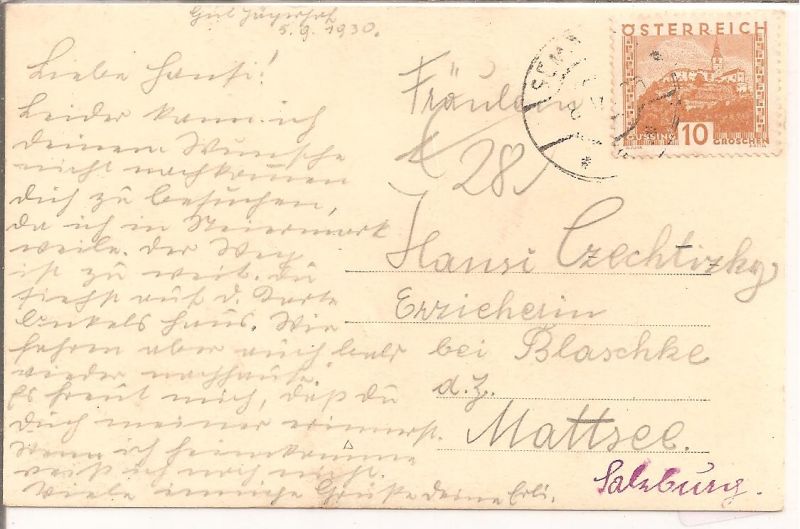 Gut Jägerhof
5.9.1930.
Liebe Hansi!
Leider kann ich
deinem Wunsche
nicht nachkommen
dich zu besuchen,
da ich in Steiermark
weile. Der Weg
ist zu weit. Du
siehst auf d. Karte
Onkels Haus. Wir
fahren aber auch bald
wieder nachhause.
Es freut mich, daß du
dich meiner erinnerst.
Wann ich heimkomme
weiß ich noch nicht.
Viele innige Grüße deine Erli.
ÖSTERREICH
GÜSSING 10 GROSCHEN
Fräulein
28
Hansi Czechtizky
Erzieherin
bei Blaschke
d.Z.
Mattsee.
Salzburg.